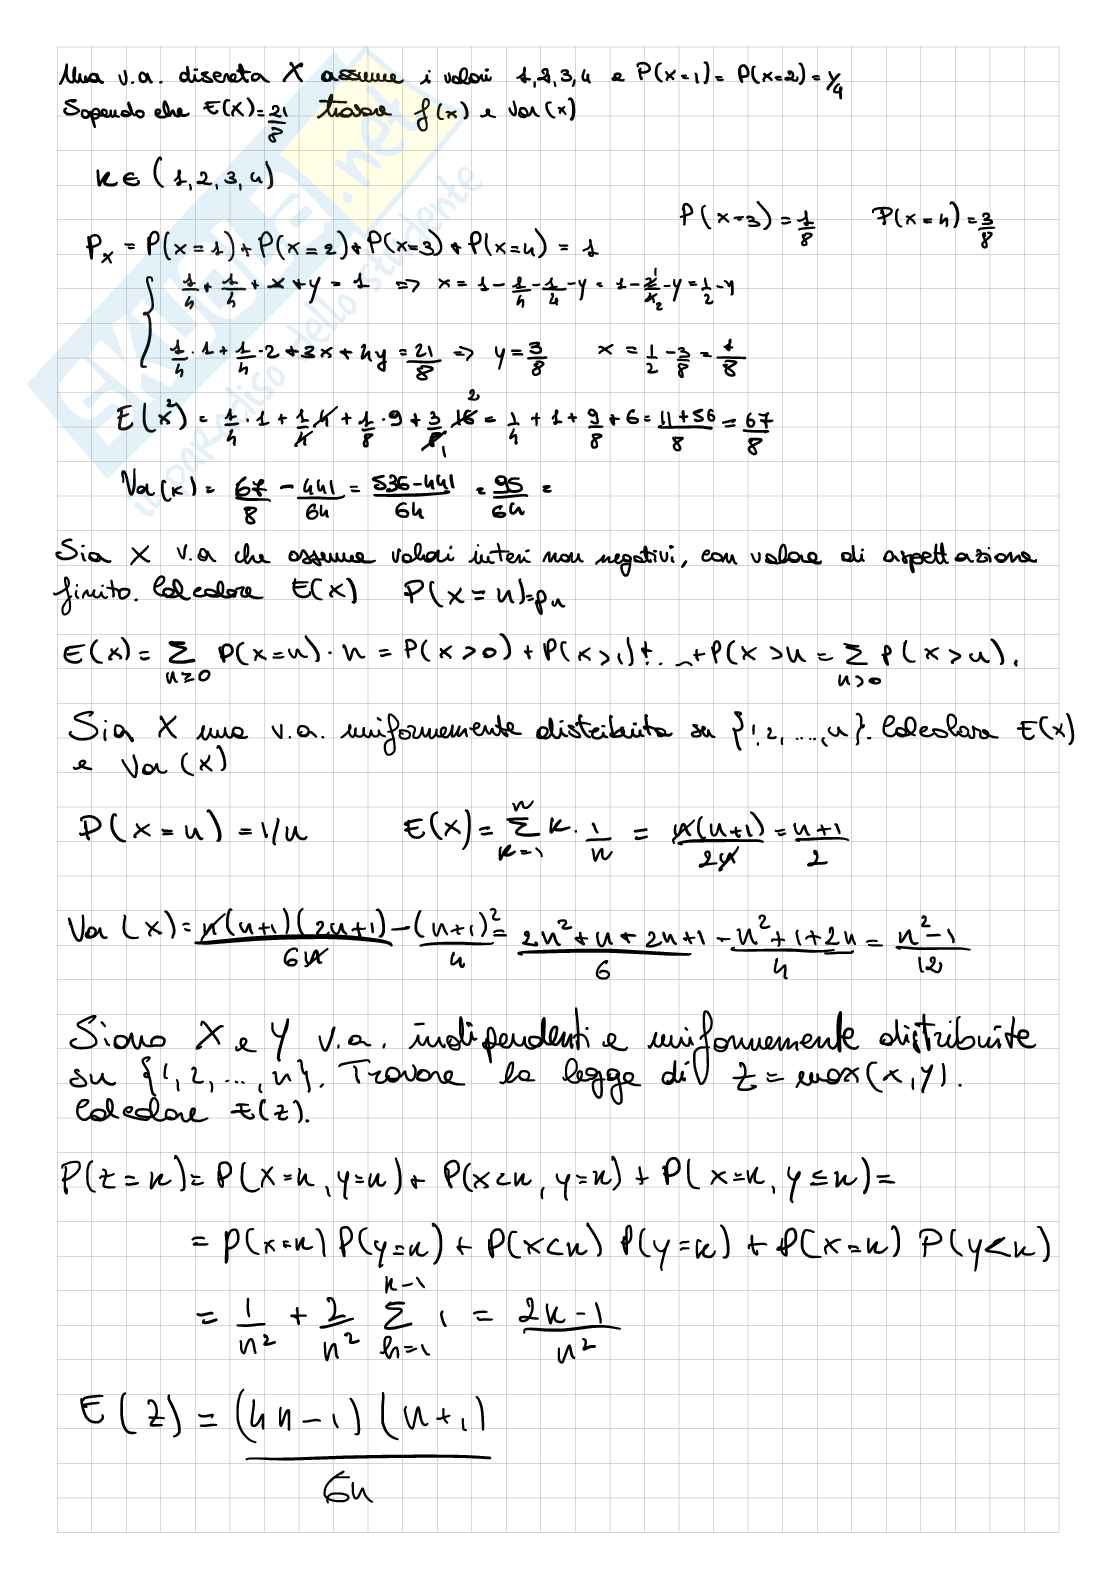 Una v.a. discreta X assume i valori 1,2,3,4 e P(x=1)= P(x=2)=1/4
Sapendo che E(X)=21/8 trovare f(x) e Var(x)
K∈(1,2,3,4)
P(x=3)=1/8 P(x=4)=3/8
Px = P(x=1)+P(x=2)+P(x=3)+P(x=4)=1
{ 1/4+1/4+x+y=1 => x=1-1/4-1/4-y=1-2/4-y=1/2-y
1/4·1+1/4·2+3x+4y=21/8 => y=3/8 x=1/2-3/8=1/8
E(x²)=1/4·1+1/4·4+1/8·9+3/8·16=1/4+1+9/8+6=11+56/8=67/8
Var(x)=67/8-441/64=536-441/64=95/64=
Sia X v.a che assume valori interi non negativi, con valore di aspettazione
finito. Calcolare E(X) P(x=n)=pn
E(x)=Σ n≥0 P(x=n)·n=P(x>0)+P(x>1)+...+P(x>n=Σ n>0 P(x>n).
Sia X una v.a. uniformemente distribuita su {1,2,...,n}. Calcolare E(X)
e Var(X)
P(x=n)=1/n E(x)=Σ k=1 n k·1/n=n(n+1)/2n=n+1/2
Var(x)=n(n+1)(2n+1)/6n-(n+1)²/4=2n²+n+2n+1/6-n²+1+2n/4=n²-1/12
Siano X e Y v.a. indipendenti e uniformemente distribuite
su {1,2,...,n}. Trovare la legge di Z=max(x,y).
Calcolare E(Z).
P(Z=k)=P(X=k,y=k)+P(x<k,y=k)+P(x=k,y≤k)=
=P(x=k)P(y=k)+P(x<k)P(y=k)+P(x=k)P(y<k)
=1/n²+2/n² Σ h=1 k-1 1=2k-1/n²
E(Z)=(4n-1)(n+1)/6n
SKUOLA.net
il paradiso dello studente